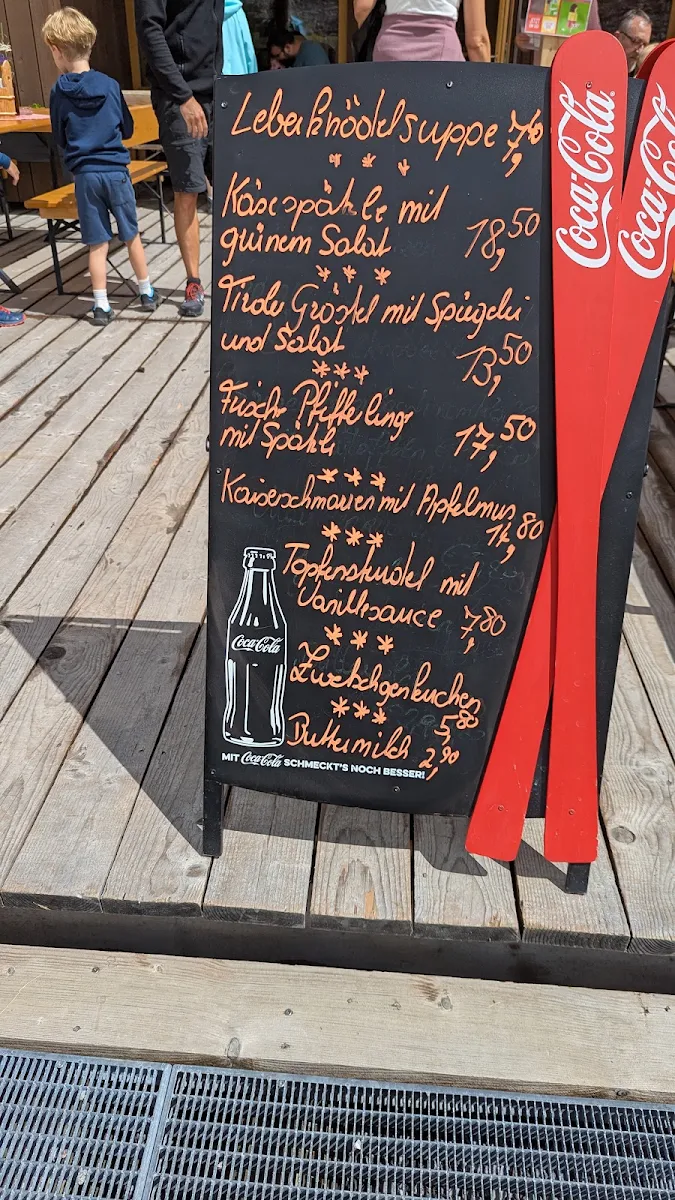 Leberknödelsuppe 7,40
* * *
Käsespätzle mit
grünem Salat 18,50
* * *
Tiroler Gröstel mit Spiegelei
und Salat 13,50
* * *
Frische Pfifferlinge
mit Spätzle 17,50
* * *
Kaiserschmarren mit Apfelmus
14,80
* * *
Topfenstrudel mit
Vanillesauce 7,80
* * *
Zwetschgenkuchen
5,80
* * *
Buttermilch 2,90
Coca-Cola
MIT Coca-Cola SCHMECKT'S NOCH BESSER!
Coca-Cola
Coca-Cola